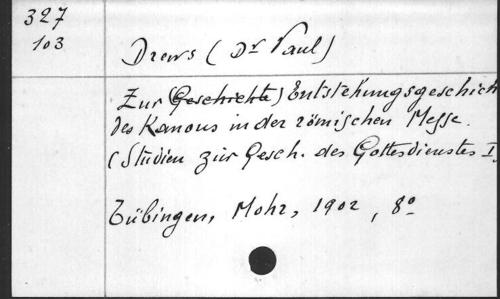 327
103
Drews (Dr Paul)
Zur (Geschichte) Entstehungsgeschich
des Kanons in der römischen Messe.
(Studien zur Gesch. des Gottesdienstes I.
Tübingen, Mohr, 1902, 8o